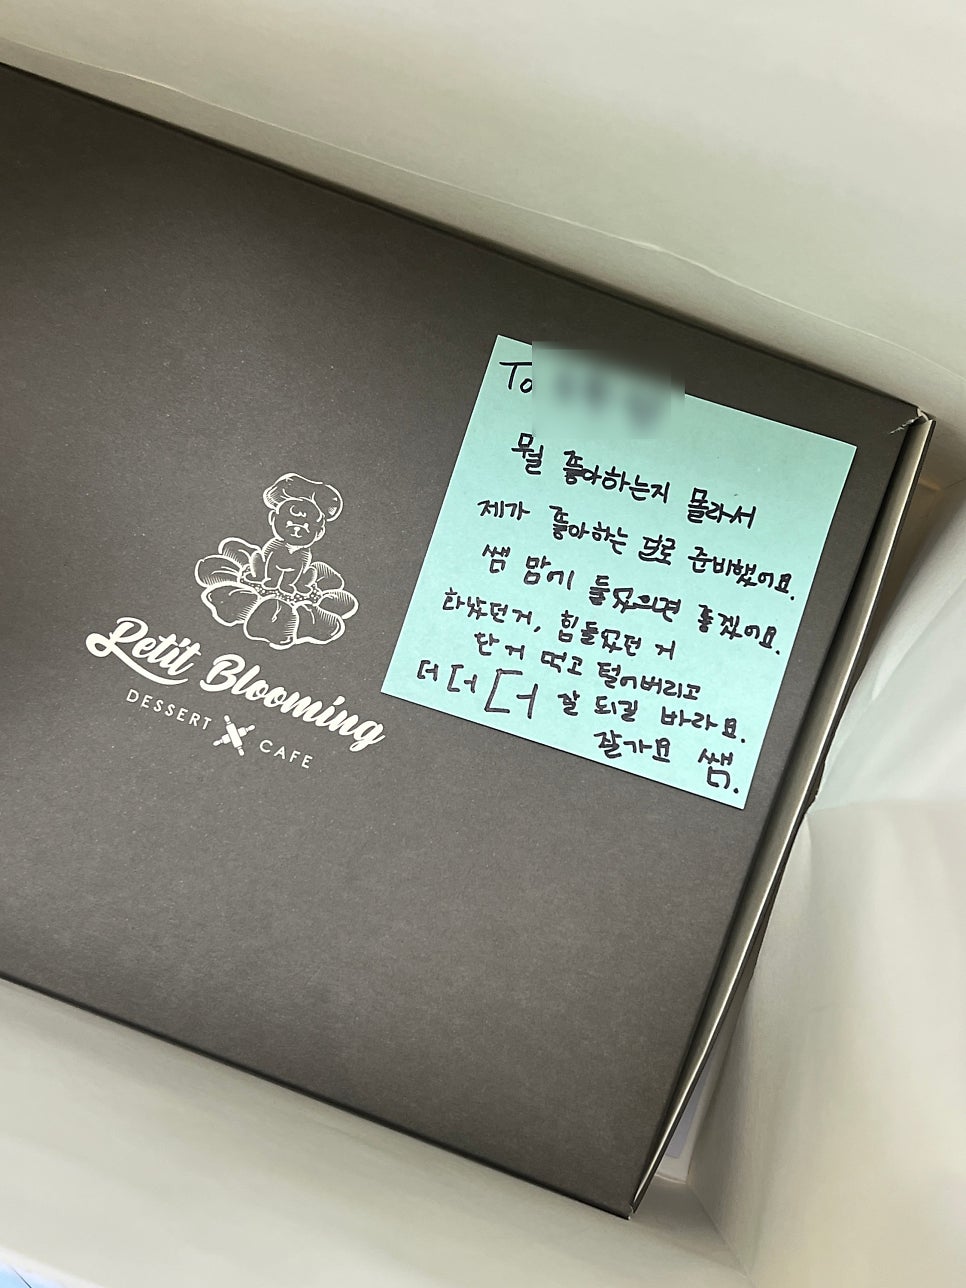 Petit Blooming
DESSERT CAFE
To
뭘 좋아하는지 몰라서
제가 좋아하는 달로 준비했어요.
쌤 맘에 들었으면 좋겠어요.
화났던거, 힘들었던 거
단 거 먹고 털어버리고
더 더 더 잘 되길 바라요.
잘가요 쌤.